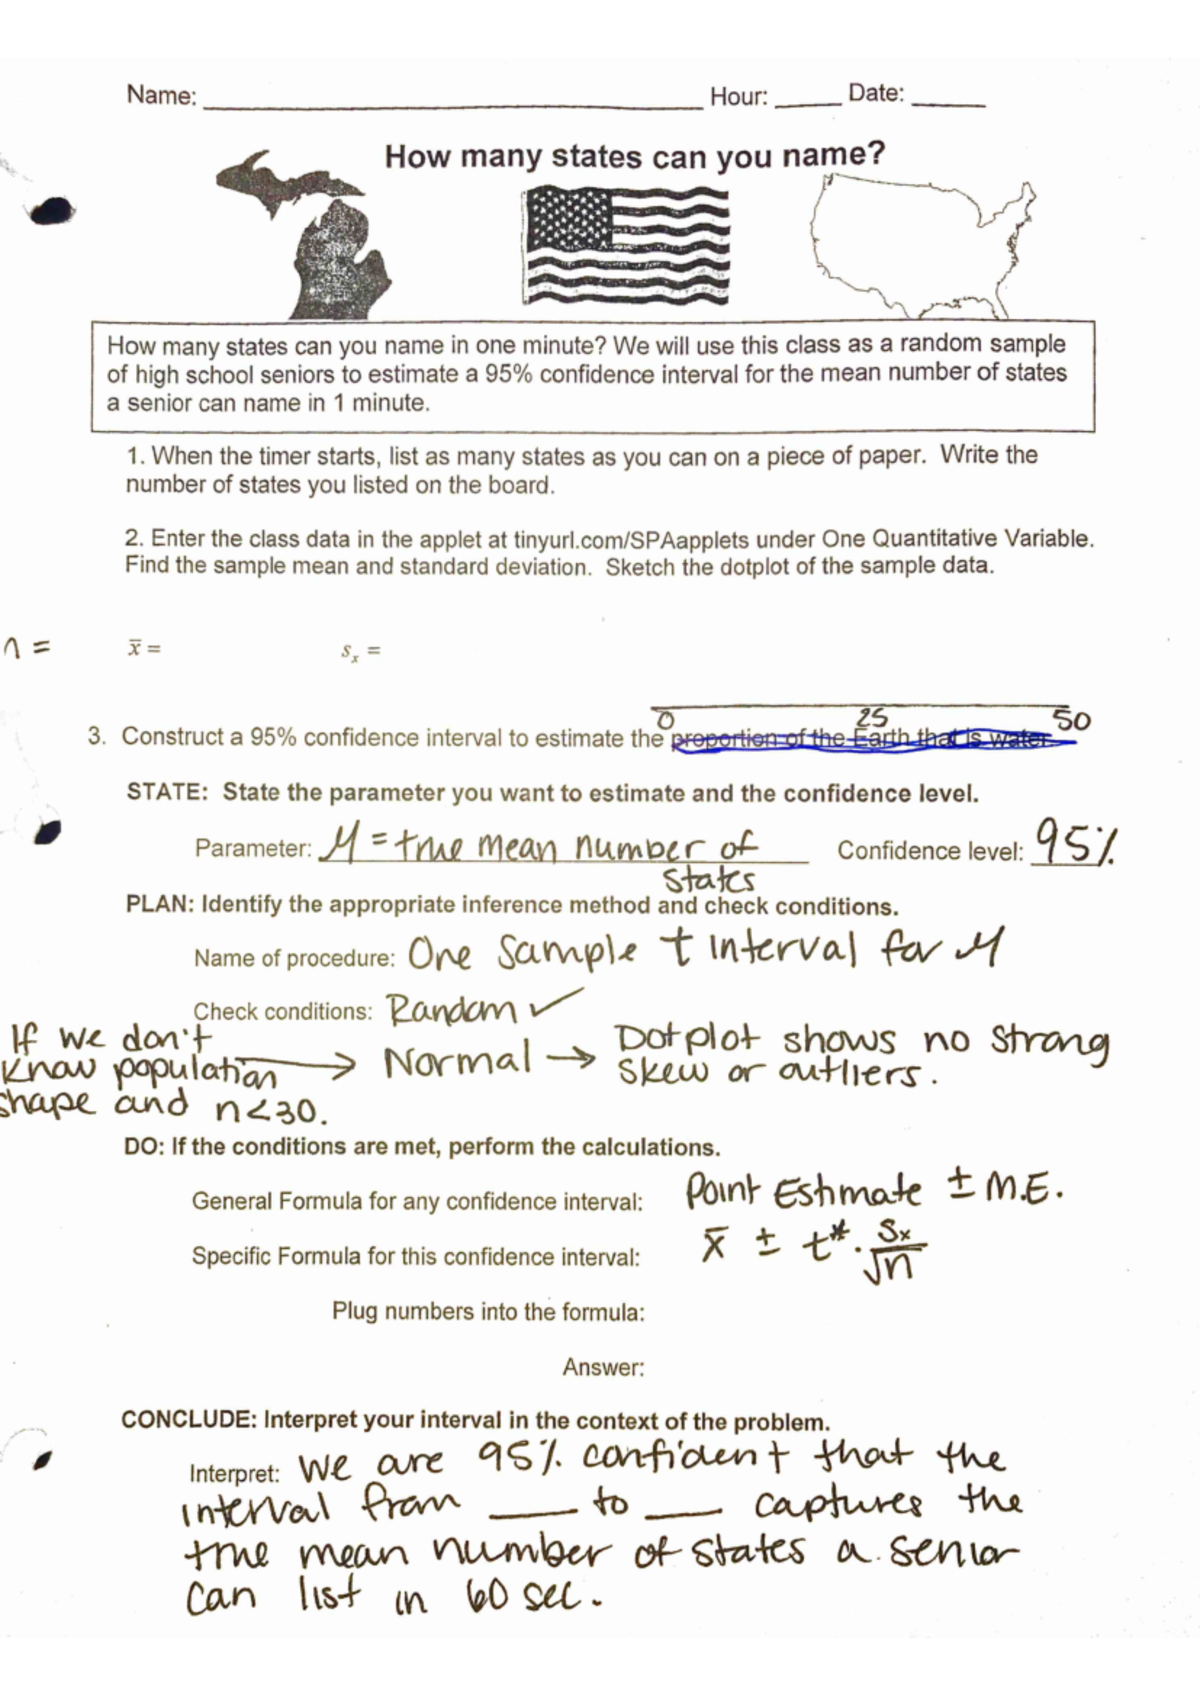 Name: ____ Hour: ____ Date: ____
How many states can you name?
How many states can you name in one minute? We will use this class as a random sample
of high school seniors to estimate a 95% confidence interval for the mean number of states
a senior can name in 1 minute.
1. When the timer starts, list as many states as you can on a piece of paper. Write the
number of states you listed on the board.
2. Enter the class data in the applet at tinyurl.com/SPAapplets under One Quantitative Variable.
Find the sample mean and standard deviation. Sketch the dotplot of the sample data.
n = x̄ = sₓ =
0 25 50
3. Construct a 95% confidence interval to estimate the proportion of the Earth that is water.
STATE: State the parameter you want to estimate and the confidence level.
Parameter: μ = true mean number of Confidence level: 95%
states
PLAN: Identify the appropriate inference method and check conditions.
Name of procedure: One Sample t interval for μ
Check conditions: Random ✓
If we don't
know population → Normal → Dotplot shows no strong
shape and n<30. skew or outliers.
DO: If the conditions are met, perform the calculations.
General Formula for any confidence interval: Point Estimate ± M.E.
Specific Formula for this confidence interval: x̄ ± t* · sₓ/√n
Plug numbers into the formula:
Answer:
CONCLUDE: Interpret your interval in the context of the problem.
Interpret: We are 95% confident that the
interval from ___ to ___ captures the
true mean number of states a senior
can list in 60 sec.